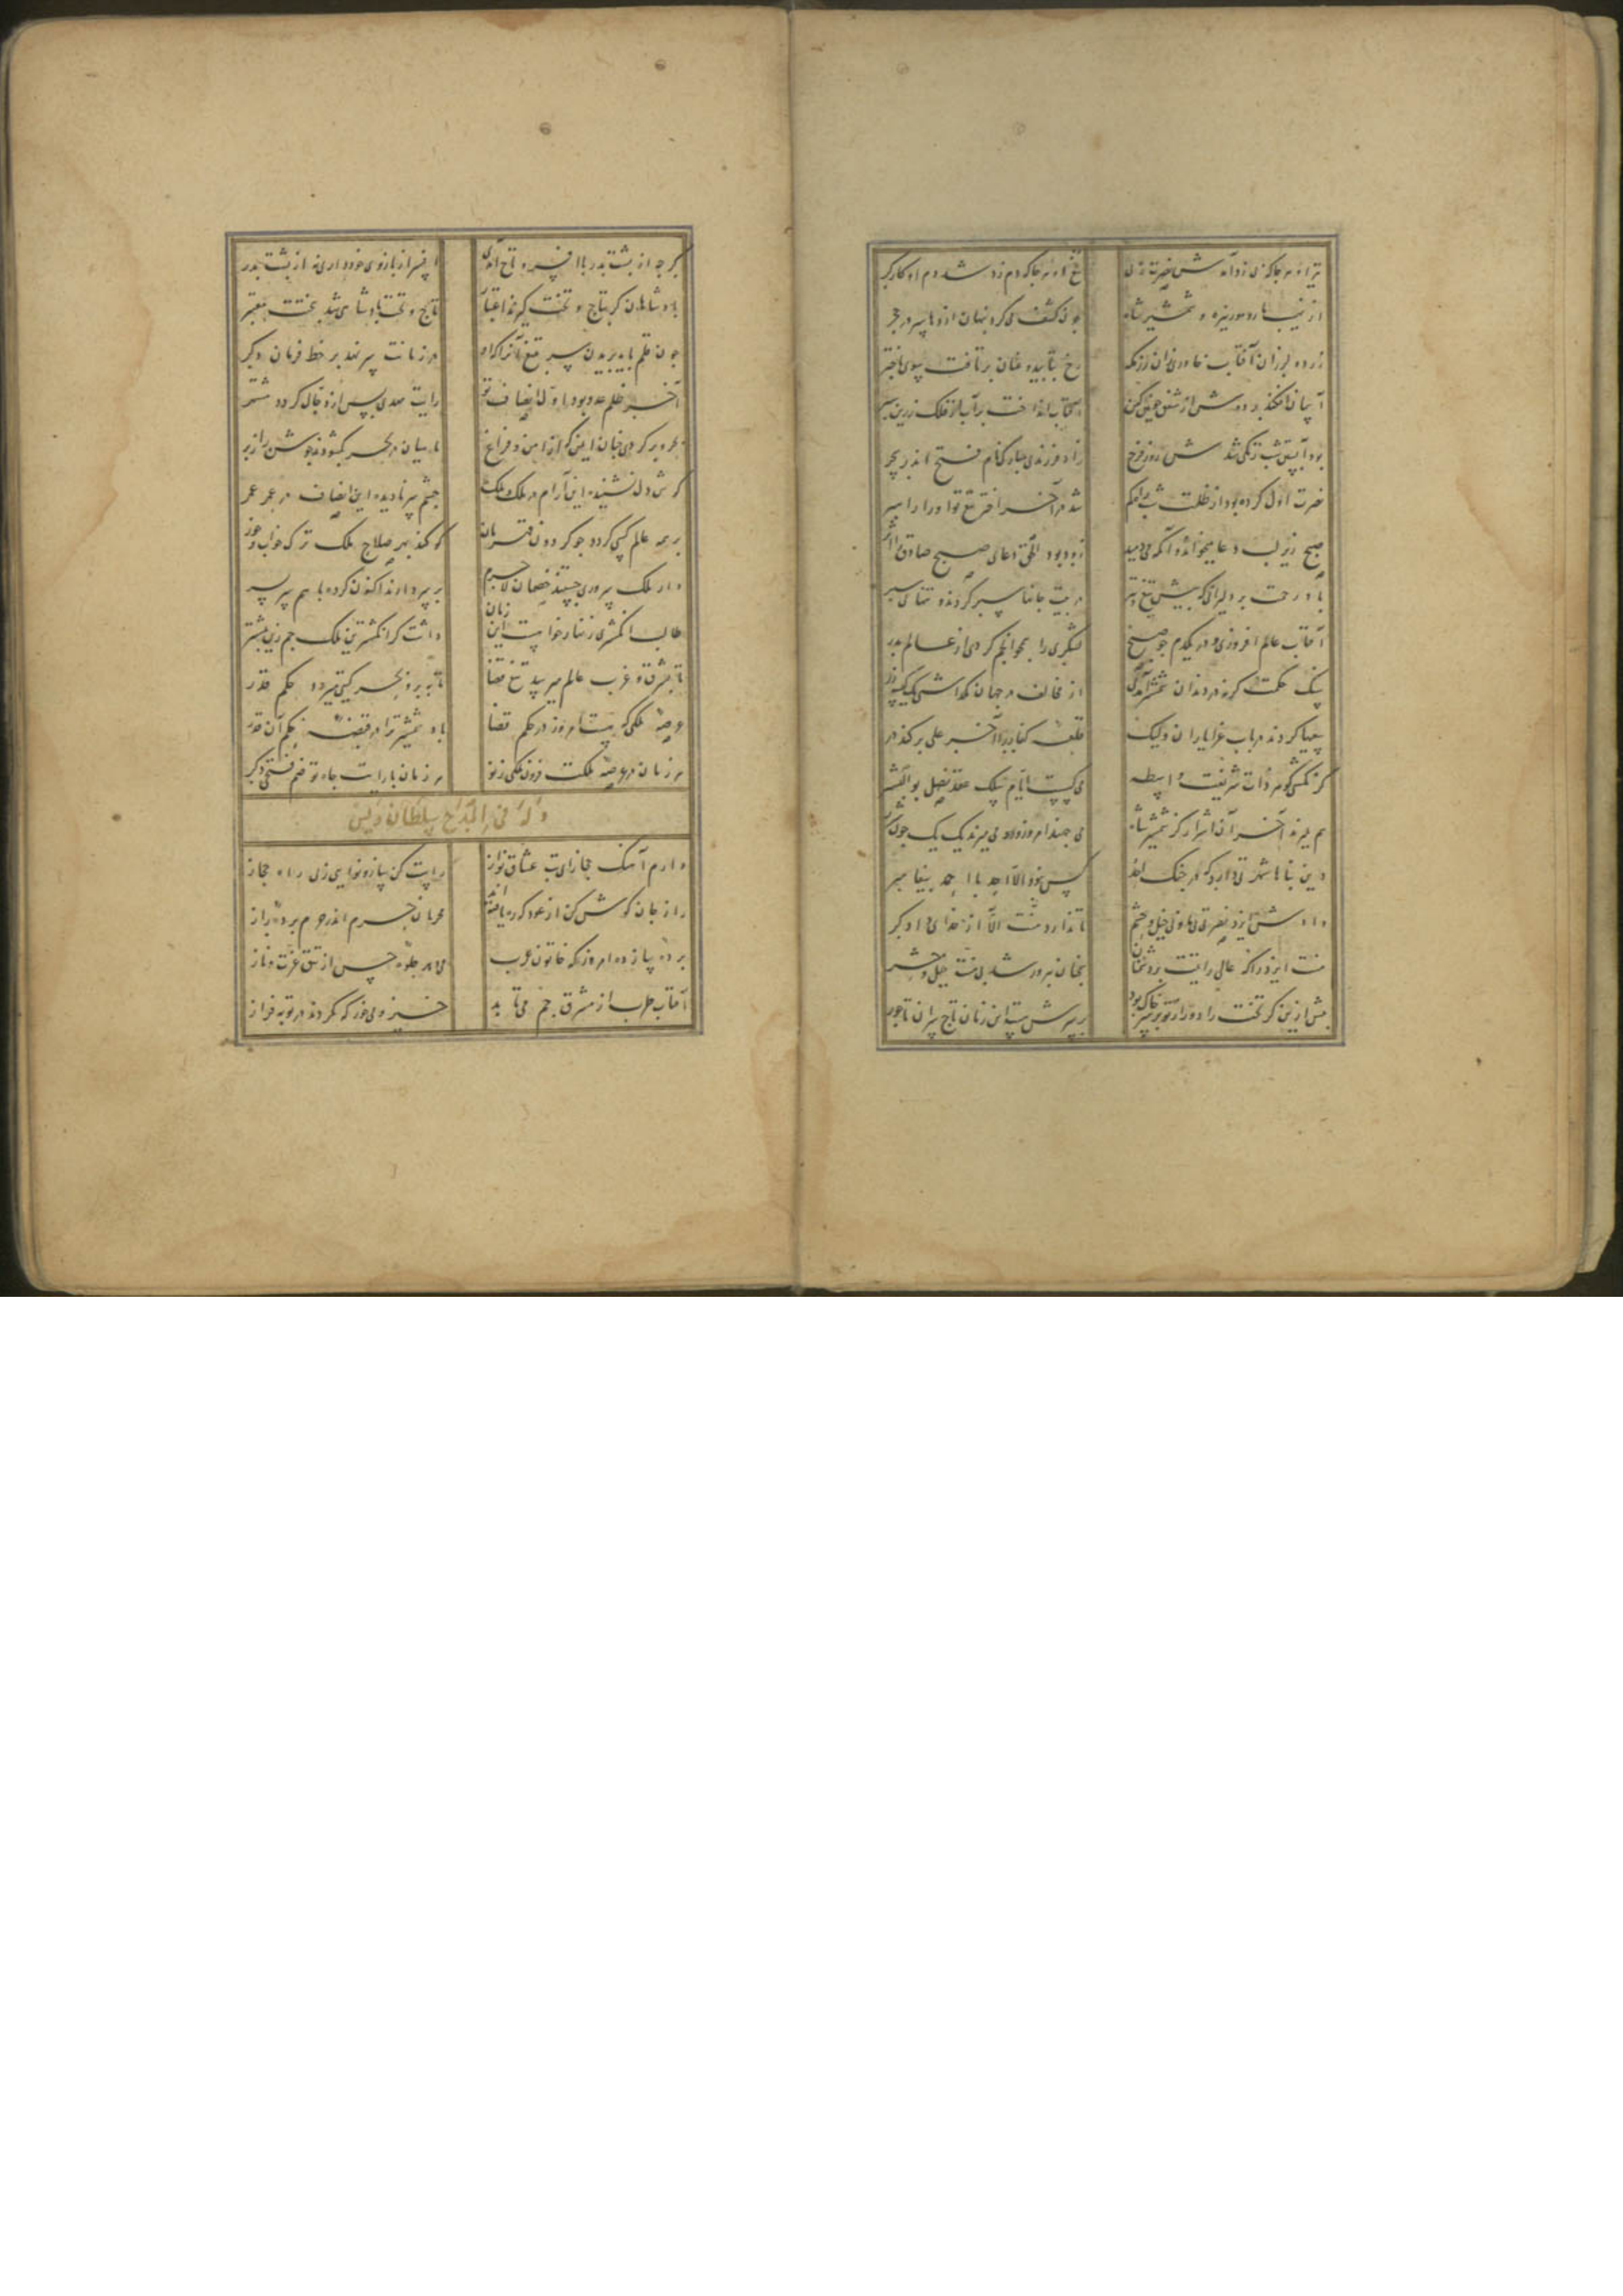 تیر او هر جا که زی زد آمدش نصرت ز پی تیغ او هر جا که دم زد شد دم او کارگر
از نهیب مار و مور نیزه و شمشیر شاه چون کشف می‌کرد پنهان اژدها سر در حجر
زرده لرزان آفتاب خاوری زان رزمگه رخ بتابید و عنان برتافت سوی باختر
آسمان افکند بر دوشش از شفق خونین کفن آفتاب انداخت بر آب از فلک زرین سپر
بود آبستن شب زنگی شدش روز فرخ زاد فرزندی سیاه کنام فتح اندر سحر
نصرت اول کرده بود از ظلمت شب راه گم شد در آخر اختر تیغ تو او را راهبر
صبح زیر لب دعا میخواند و آنگه می‌دمید زود بود الحق دعای صبح صادق را اثر
باد رحمت بر دلیرانی که پیش تیغ و تیر در پیت جانها سپر کردند و تنها پی سپر
آفتاب عالم افروزی و در یکدم چو صبح لشکری را همچو انجم کردی از عالم بدر
سنگ حکمت گرنه در دندان شمشیر آمدی از مخالف در جهان نگذاشتی یک کینه‌ور
سعیها کردند در باب غزا یاران ولیک قلعه کفار را آخر علی برکند در
گر نگشتی گوهر ذات شریفت واسطه می‌گسست ایام سلک عقد نسل بوالبشر
هم بمیرند آخر آن اشرار کز شمشیر شاه می‌جهند امروز و رود می‌میرند یک یک چون شرر
دین پناها شهرتی دارد که در جنگ احد کس نبود الا احد با احمد پیغامبر
دادش ایزد نصرتی بی‌عون خیل و حشم تا ندارد منت الا از خدای دادگر
منت ایزد را که عالی رایتت بر دشمنان همچنان پیروز شد بی منت خیل و حشر
پیش ازین گر تخت را دور از تو بر سر خاک بود بر سرش هست این زمان تاج سران تاجور
گر چه از پشت پدر با افسر و تاج آمدی افسر از بازوی خود داری نه از پشت پدر
پادشاهان گر بتاج و تخت گیرند اعتبار تاج و تخت پادشاهی شد بتختت معتبر
چون قلم باید بریدن سر بتیغ آنرا که او در زمانت سر نهد بر خط فرمان دگر
آخر ظلم عدو بود اول انصاف تو رایت مهدی پس از دجال گردد مشتهر
بحر و بر کردی چنان ایمن که از امن و فراغ ماهیان در بحر بگشودند جوشن را ز بر
گوش دل نشنیده این آرام در ملک و ملک چشم سر نادیده این انصاف در عمر عمر
بر همه عالم کسی گردد چو گردون قهرمان کو کند بهر صلاح ملک ترک خواب و خور
در ملک سروری جستند خصمان لاجرم بر سر دارند اکنون کرده با هم سر بسر
طالب انگشتری زنهار خواهست این زمان داشت گر انگشترین ملک جم زین پیشتر
تا بشرق و غرب عالم میرسد تیغ قضا تا به بر و بحر گیتی میرود حکم قدر
عرصه ملکی که هست امروز در حکم قضا باد شمشیر ترا در قبضه حکم آن قدر
هر زمان در عرصه ملکت فزون ملکی ز نو هر زمان با رایت جاه تو ضم فتحی دگر
وله فی المدح سلطان اویس
دارم آهنگ حجاز ای بت عشاق نواز راست کن ساز و نوایی ز پی راه حجاز
راز جان گوش کن از عود که ره یافته‌اند محرمان حرم اندر حرم پرده راز
پرده ساز ده امروز که خاتون عرب می‌دهد جلوه حسن از تتق عزت و ناز
آفتاب طرب از مشرق خم می‌تابد خیز و می خور که نکردند در توبه فراز